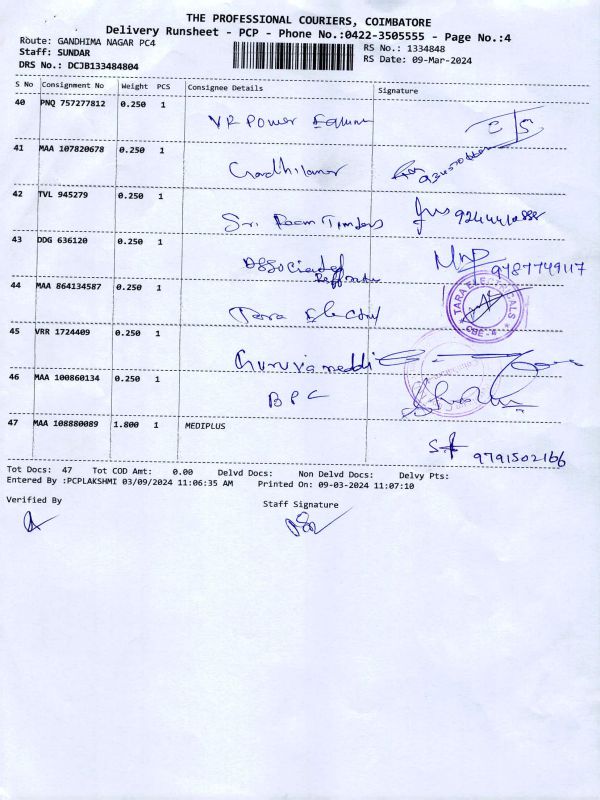 THE PROFESSIONAL COURIERS, COIMBATORE
Delivery Runsheet - PCP - Phone No.:0422-3505555 - Page No.:4
Route: GANDHIMA NAGAR PC4
RS No.: 1334848
Staff: SUNDAR
RS Date: 09-Mar-2024
DRS No.: DCJB133484804
S No Consignment No Weight PCS Consignee Details Signature
40 PNQ 757277812 0.250 1 VR Power
41 MAA 107820678 0.250 1
42 TVL 945279 0.250 1 Sri Ram Traders
43 DDG 636120 0.250 1 Associated 9787749117
44 MAA 864134587 0.250 1 Tara
TARA ELECTRICALS
CBE-4
45 VRR 1724409 0.250 1
46 MAA 100860134 0.250 1 BPC
47 MAA 108880089 1.800 1 MEDIPLUS
9791502166
Tot Docs: 47 Tot COD Amt: 0.00 Delvd Docs: Non Delvd Docs: Delvy Pts:
Entered By :PCPLAKSHMI 03/09/2024 11:06:35 AM Printed On: 09-03-2024 11:07:10
Verified By
Staff Signature